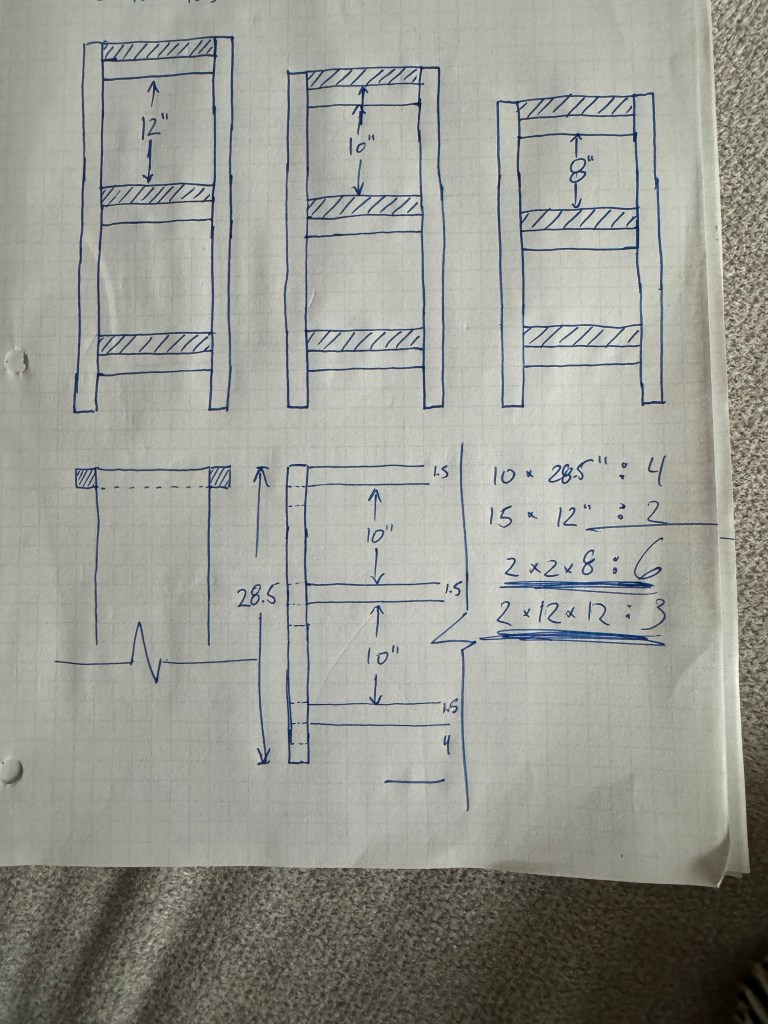 12"
10"
8"
1.5
10"
28.5
1.5
10"
1.5
4
10 × 28.5" : 4
15 × 12" : 2
2×2×8 : 6
2×12×12 : 3